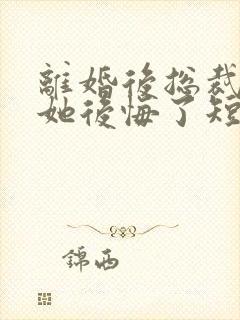 離婚後总裁
她後悔了短
錦西